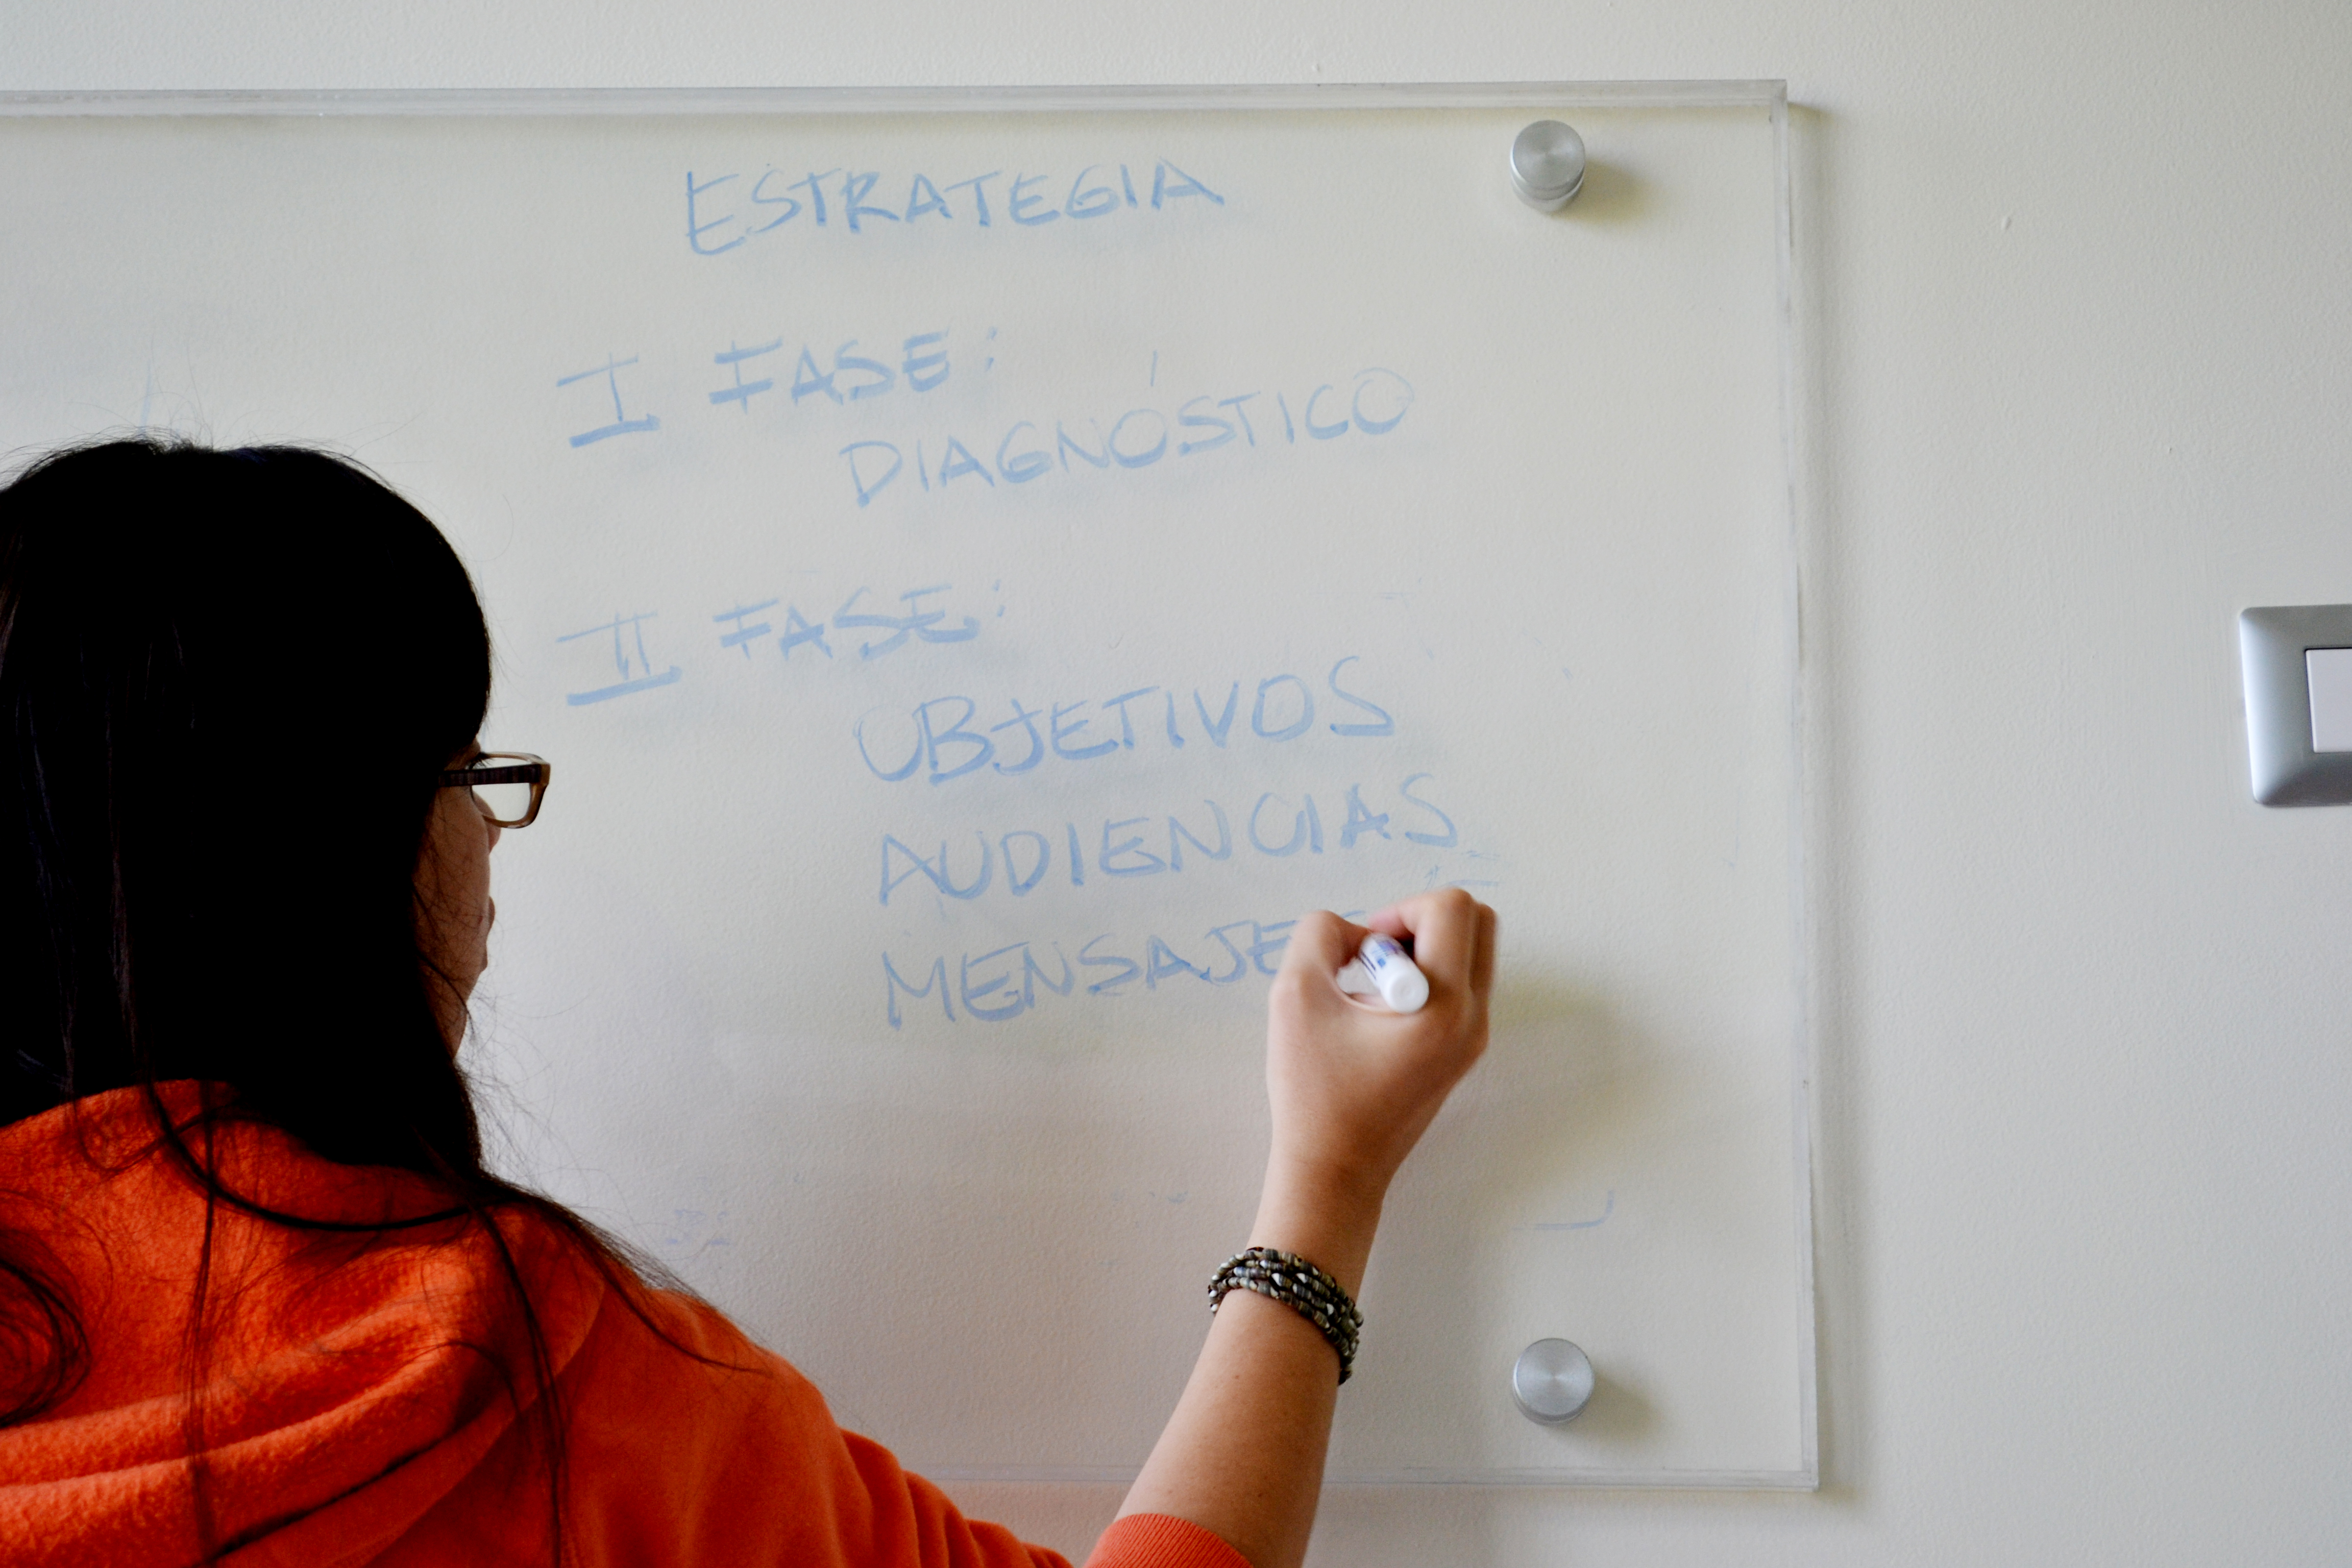 ESTRATEGIA
I FASE:
DIAGNÓSTICO
II FASE:
OBJETIVOS
AUDIENCIAS
MENSAJES